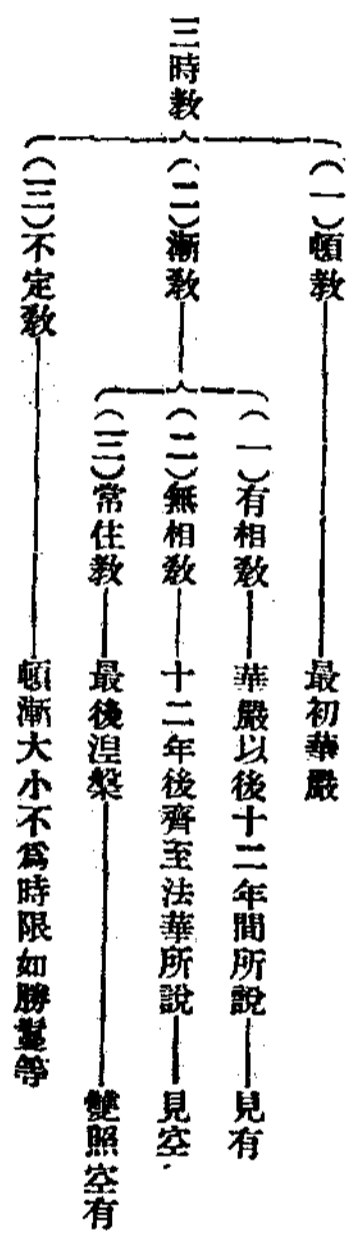 三時教
(一)頓教
最初華嚴
(二)漸教
(一)有相教
華嚴以後十二年間所說
見有
(二)無相教
十二年後齊至法華所說
見空
(三)常住教
最後涅槃
雙照空有
(三)不定教
頓漸大小不爲時限如勝鬘等